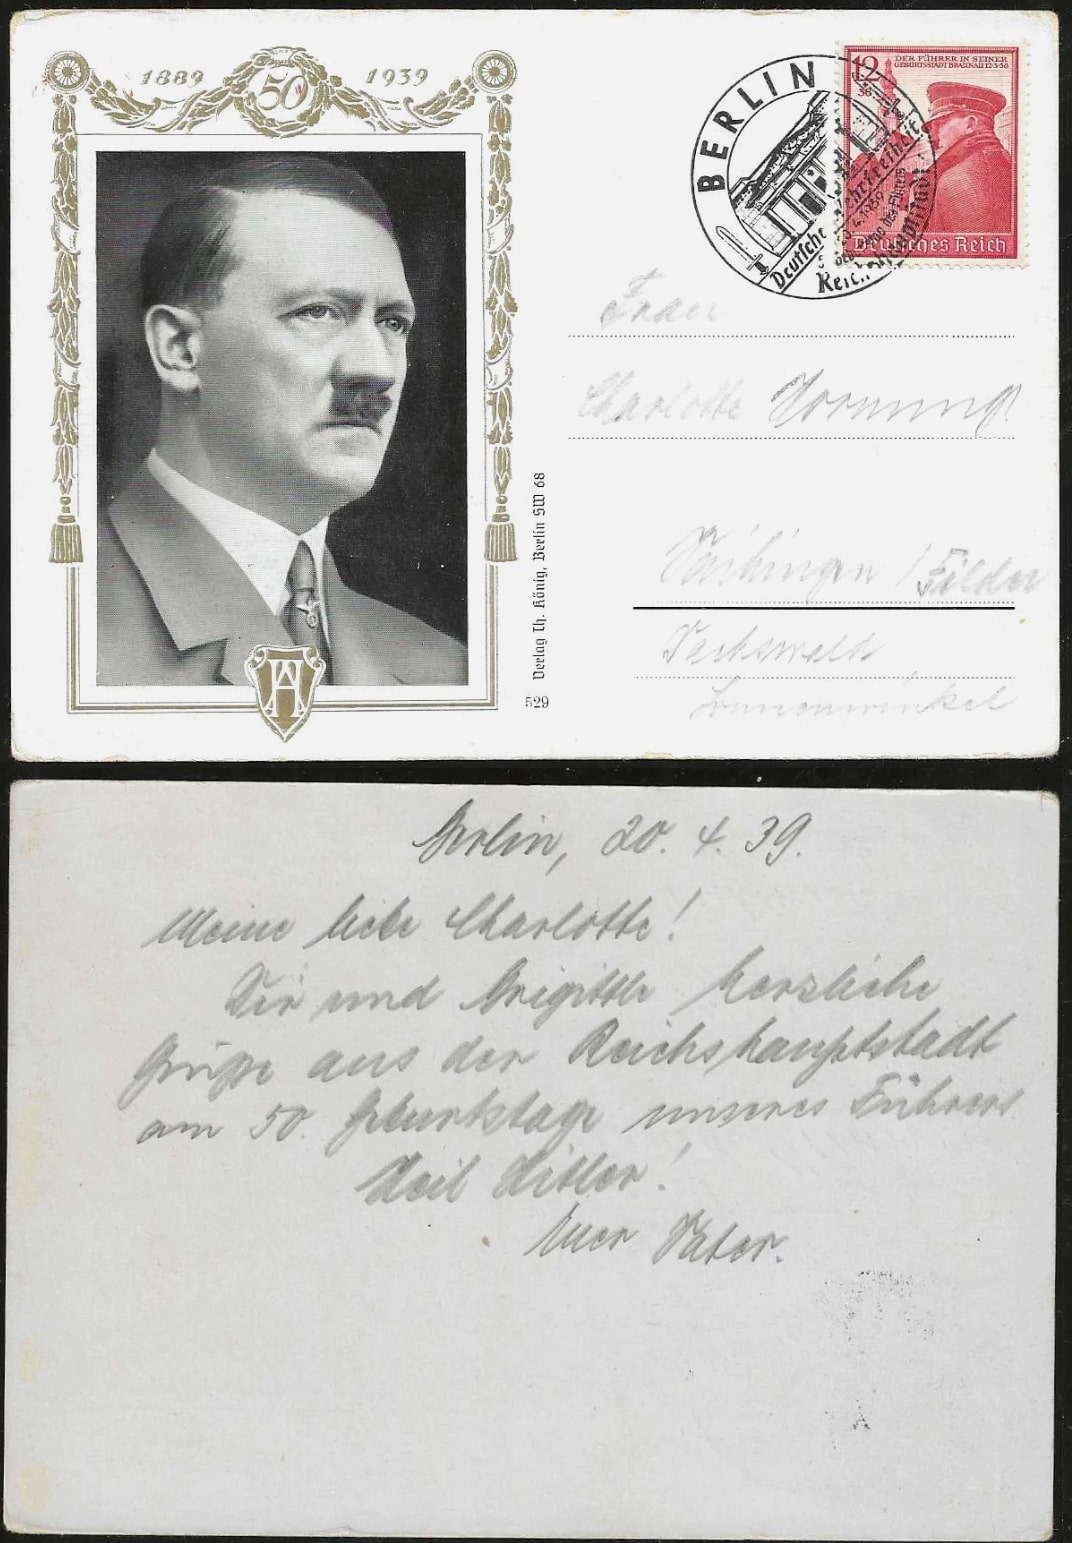 1889 50 1939
AH
Verlag Th. König, Berlin SW 68
529
BERLIN
Deutsche Wehrfreiheit
Reichshauptstadt
12
38
DER FÜHRER IN SEINER
GEBURTSSTADT BRAUNAU 12·3·38
Deutsches Reich
Frau
Charlotte Hornung
Vaihingen / Filder
Sonnenwinkel
Berlin, 20. 4. 39.
Meine liebe Charlotte!
Dir und Brigitte herzliche
Grüße aus der Reichshauptstadt
am 50. Geburtstage unseres Führers
Heil Hitler!
Euer Vater.